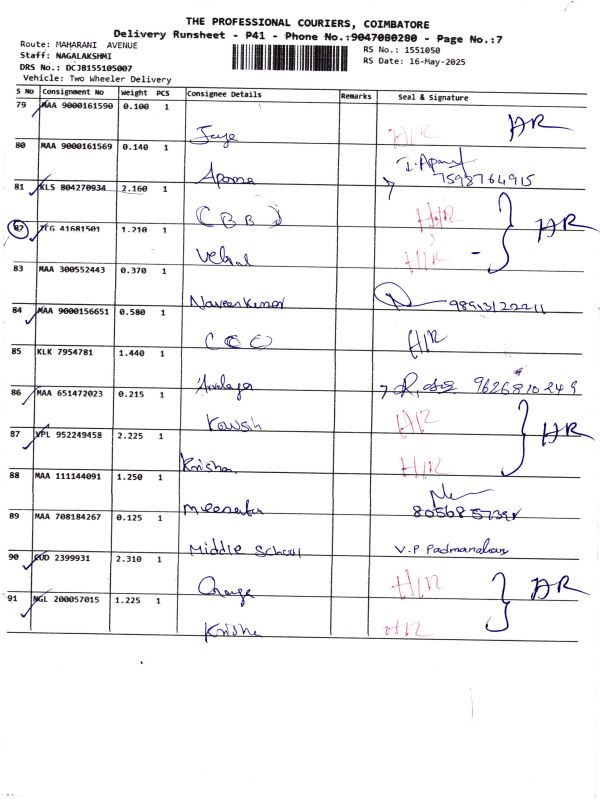 THE PROFESSIONAL COURIERS, COIMBATORE
Delivery Runsheet - P41 - Phone No.:9047080280 - Page No.:7
Route: MAHARANI AVENUE
RS No.: 1551050
Staff: NAGALAKSHMI
RS Date: 16-May-2025
DRS No.: DCJB155105007
Vehicle: Two Wheeler Delivery
S No Consignment No Weight PCS Consignee Details Remarks Seal & Signature
79 MAA 9000161590 0.100 1
H/R
80 MAA 9000161569 0.140 1
7598764915
81 KLS 804270934 2.160 1
CBBJ H/R
82 41681501 1.210 1
H/R
83 MAA 300552443 0.370 1
Naveenkumar
84 MAA 9000156651 0.580 1
H/R
85 KLK 7954781 1.440 1
9626810249
86 MAA 651472023 0.215 1
H/R
87 VPL 952249458 2.225 1
Krisha H/R
88 MAA 111144091 1.250 1
89 MAA 708184267 0.125 1
Middle School V.P Padmanaban
90 2399931 2.310 1
H/R
91 NGL 200057015 1.225 1
Krisha H/R